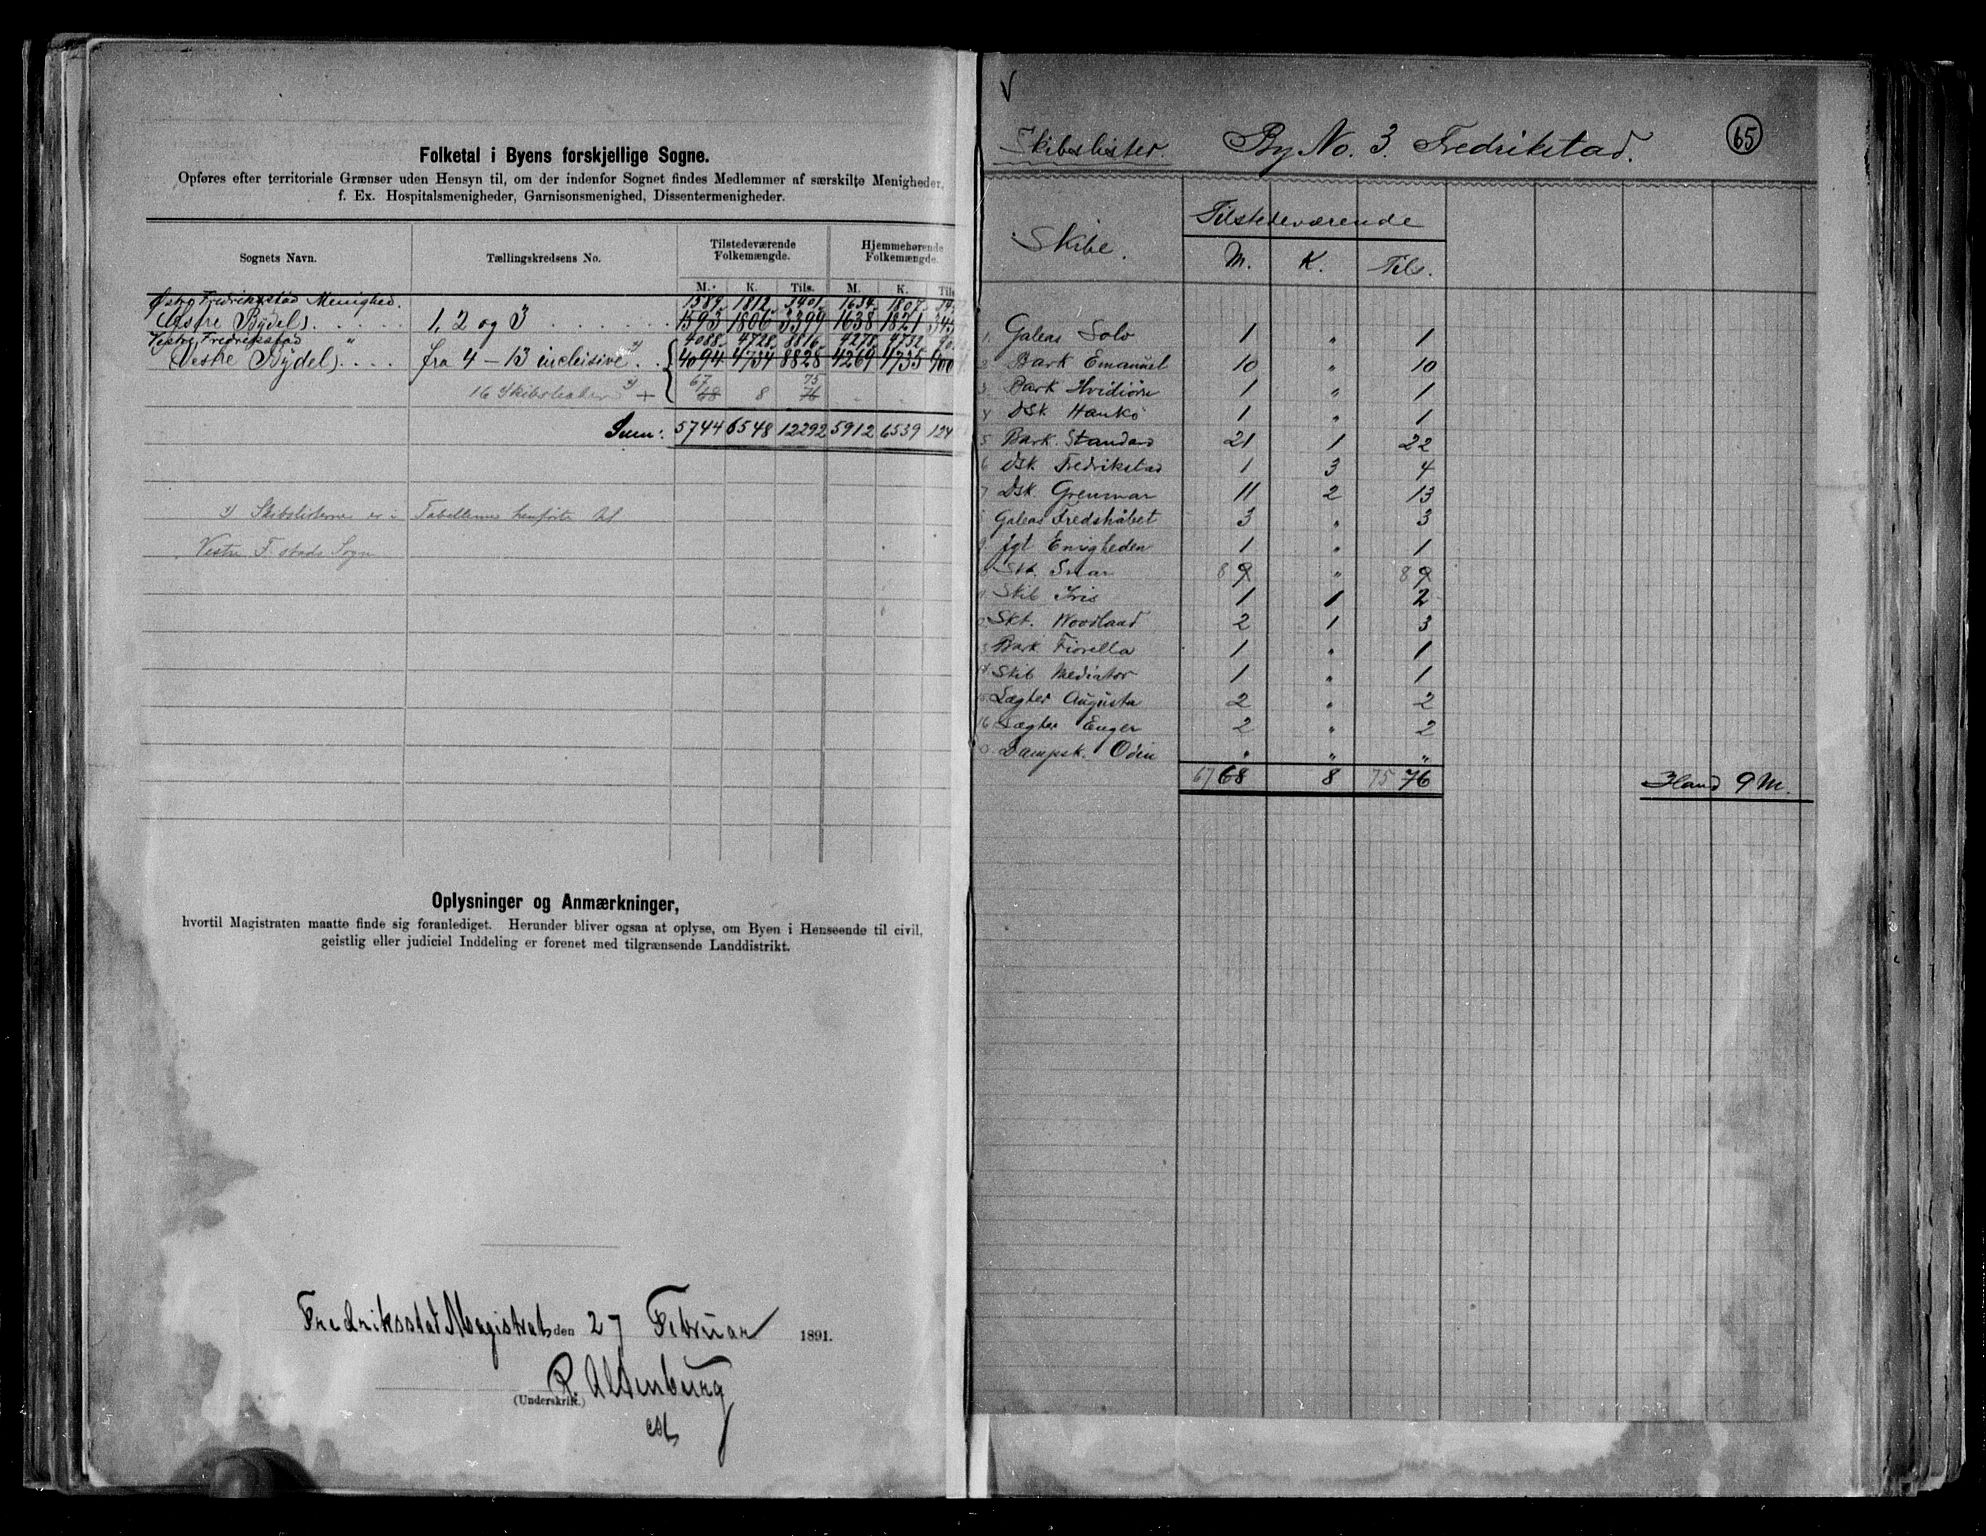 Folketal i Byens forskjellige Sogne.
Opføres efter territoriale Grænser uden Hensyn til, om der indenfor Sognet findes Medlemmer af særskilte Menigheder,
f. Ex. Hospitalsmenigheder, Garnisonsmenighed, Dissentermenigheder.
Sognets Navn. Tællingskredsens No. Tilstedeværende Folkemængde. Hjemmehørende Folkemængde.
M. K. Tils. M. K. Tils
Østre Fredriksstad Menighed. 1589 1812 3401 1634 1807
(Østre Bydel) 1, 2 og 3 1593 1806 3399 1638 1821 345
Vestre Fredrikstad " 4088 4728 8816 4278 4732
(Vestre Bydel) fra 4 – 13 inclusive 4094 4734 8828 4269 4735 900
67 75
16 Skibslister + 68 8 76
Sum: 5744 6548 12292 5912 6539 124
Skibslisterne er i Tabellerne henførte til
Vestre F.stads Sogn
Oplysninger og Anmærkninger,
hvortil Magistraten maatte finde sig foranlediget. Herunder bliver ogsaa at oplyse, om Byen i Henseende til civil,
geistlig eller judiciel Inddeling er forenet med tilgrænsende Landdistrikt.
Fredriksstad Magistrat den 27 Februar 1891.
R. Altenburg
(Underskrift.)
cst
V
Skibslister. By No. 3. Fredrikstad. 65
Skibe. Tilstedeværende
M. K. Tils.
1. Galeas Solo 1 " 1
2 Bark Emanuel 10 " 10
3 Bark Hvidiørn 1 " 1
4 DSk Hankø 1 " 1
5 Bark. Standard 21 1 22
6 DSk Fredrikstad 1 3 4
7 Dsk. Grenmar 11 2 13
8 Galeas Fredshåbet 3 " 3
9 Jgt Enigheden 1 " 1
Skt. Snar 8 9 " 8 9
Skib Iris 1 1 2
Skt. Woodland 2 1 3
Bark Fiorella 1 " 1
14 Skib Mediator 1 " 1
15 Lægter Augusta 2 " 2
16 Lægter Enger 2 " 2
0 Dampsk. Odin " " "
67 68 8 75 76 Iland 9 M.